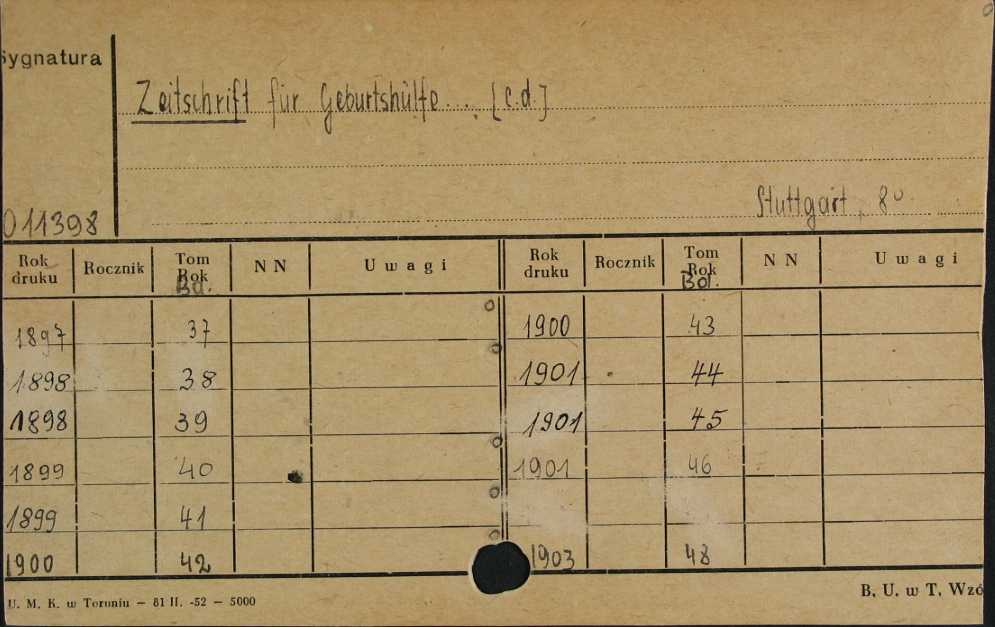 Sygnatura
Zeitschrift für Geburtshülfe... [c.d.]
Stuttgart, 8°
011398
Rok druku Rocznik Tom Rok Bd. NN Uwagi Rok druku Rocznik Tom Rok Bd. NN Uwagi
1897 37 1900 43
1898 38 1901 44
1898 39 1901 45
1899 40 1901 46
1899 41
1900 42 1903 48
U. M. K. w Toruniu — 81 II. -52 — 5000 B. U. w T. Wzó